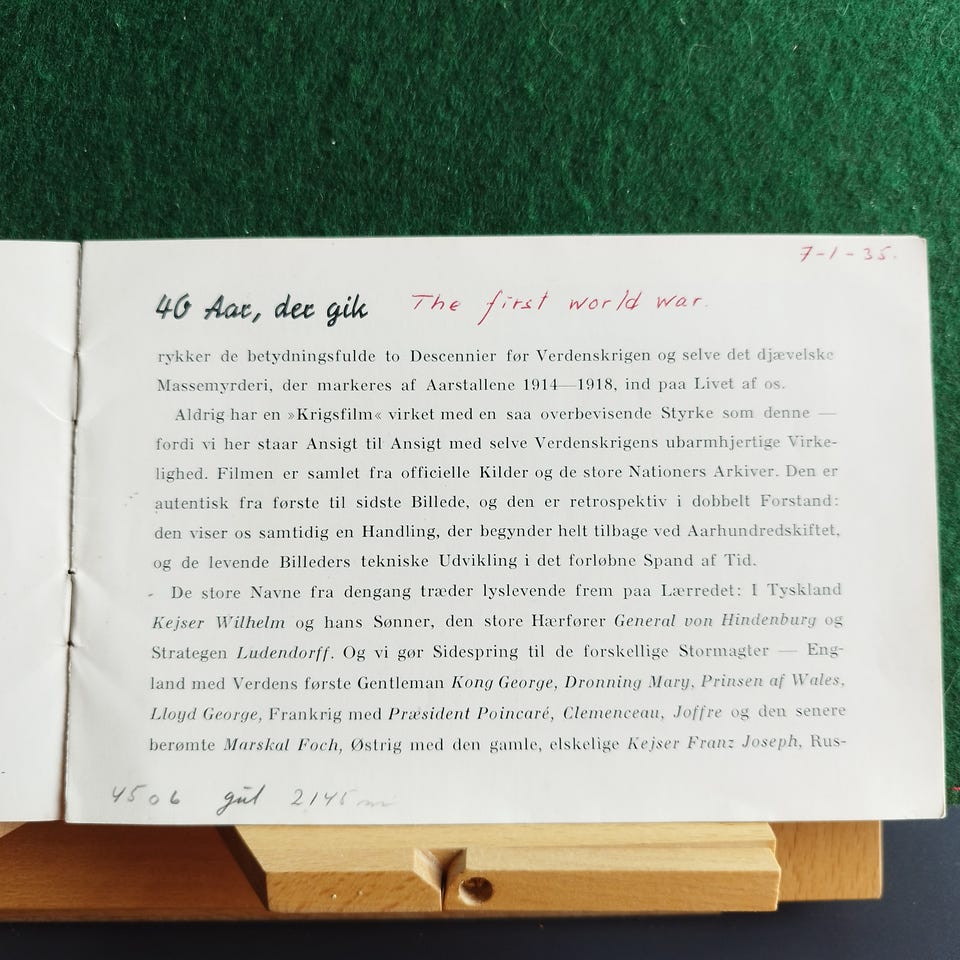 7-1-35.
40 Aar, der gik The first world war.
rykker de betydningsfulde to Descennier før Verdenskrigen og selve det djævelske
Massemyrderi, der markeres af Aarstallene 1914—1918, ind paa Livet af os.
Aldrig har en »Krigsfilm« virket med en saa overbevisende Styrke som denne —
fordi vi her staar Ansigt til Ansigt med selve Verdenskrigens ubarmhjertige Virke-
lighed. Filmen er samlet fra officielle Kilder og de store Nationers Arkiver. Den er
autentisk fra første til sidste Billede, og den er retrospektiv i dobbelt Forstand:
den viser os samtidig en Handling, der begynder helt tilbage ved Aarhundredskiftet,
og de levende Billeders tekniske Udvikling i det forløbne Spand af Tid.
De store Navne fra dengang træder lyslevende frem paa Lærredet: I Tyskland
Kejser Wilhelm og hans Sønner, den store Hærfører General von Hindenburg og
Strategen Ludendorff. Og vi gør Sidespring til de forskellige Stormagter — Eng-
land med Verdens første Gentleman Kong George, Dronning Mary, Prinsen af Wales,
Lloyd George, Frankrig med Præsident Poincaré, Clemenceau, Joffre og den senere
berømte Marskal Foch, Østrig med den gamle, elskelige Kejser Franz Joseph, Rus-
4506 gul 2145 m